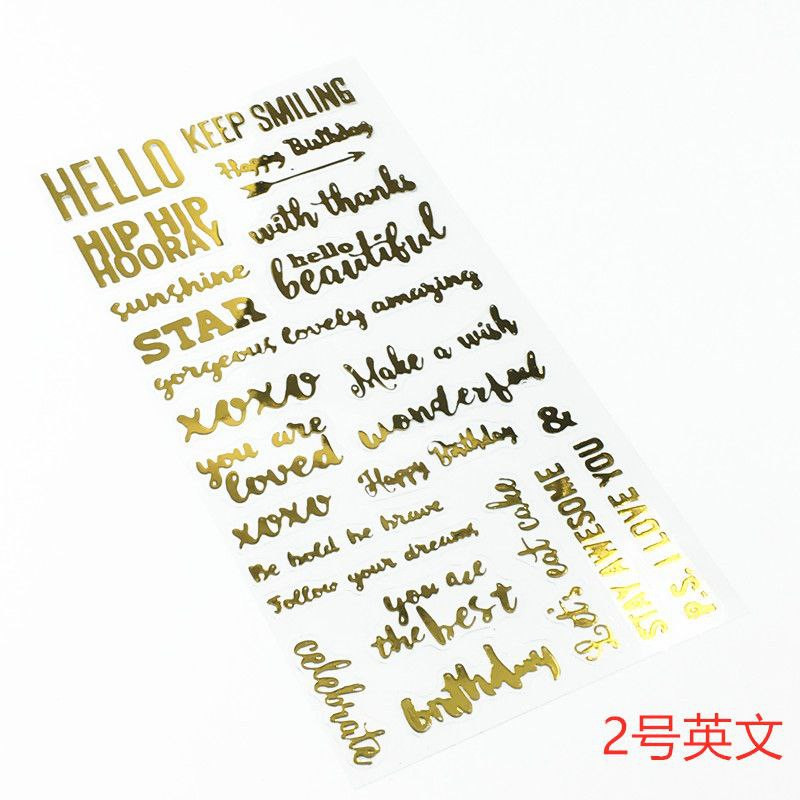 HELLO
KEEP SMILING
Happy Birthday
HIP HIP
HOORAY
with thanks
sunshine
hello
beautiful
STAR
gorgeous lovely amazing
xoxo
Make a wish
you are
loved
wonderful
&
xoxo
Happy Birthday
Be bold be brave
Follow your dreams
Let's eat cake
STAY AWESOME
P.S. I LOVE YOU
you are
the best
celebrate
birthday
2号英文